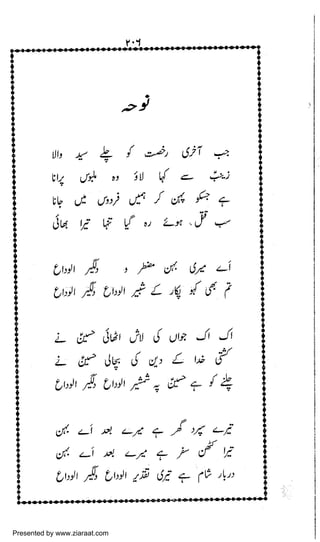 ۲۰۶
نوحہ
جب آخری رخصت کو چلے سید والا
زینبؑ سے کہا لاؤ وہ ملبوس پرانا
ہے جسکو پہن کر ہمیں فردوس میں جانا
سب قتل ہوئے رہ گیا تنہا تیرا بھائی
اے میری بہن مضطر و دلگیر الوداع
تم بھی کہو پکار کے شبیر الوداع دلگیر الوداع
اک اک جواں کی لاش اٹھائی حسینؑ نے
کشتی خدا کے دین کی بچالی حسینؑ نے
چلنے کو ہے حسینؑ پہ شمشیر الوداع دلگیر الوداع
تیرے سپرد گھر ہے میرے بعد اے بہن
تیرا کٹھن سفر ہے میرے بعد اے بہن
دربار شام ہے تیری تقدیر الوداع دلگیر الوداع
Presented by www.ziaraat.com